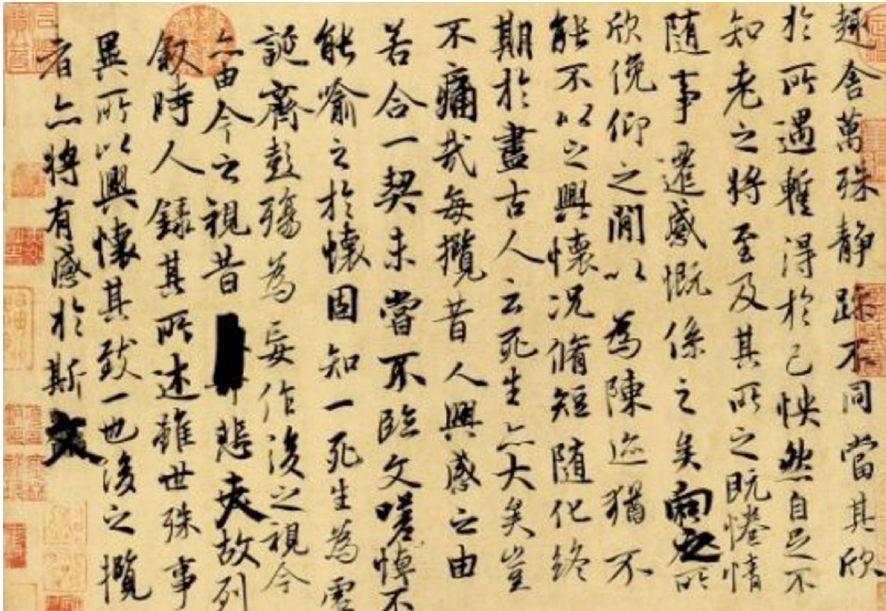 趣舍萬殊静躁不同當其欣
於所遇蹔得於己怏然自足不
知老之將至及其所之既惓情
随事遷感慨係之矣向之所
欣俛仰之閒以為陳迹猶不
能不以之興懷況脩短随化終
期於盡古人云死生亦大矣豈
不痛哉每攬昔人興感之由
若合一契未嘗不臨文嗟悼不
能喻之於懷固知一死生為虛
誕齊彭殤為妄作後之視今
亦由今之視昔悲夫故列
叙時人錄其所述雖世殊事
異所以興懷其致一也後之攬
者亦將有感於斯文